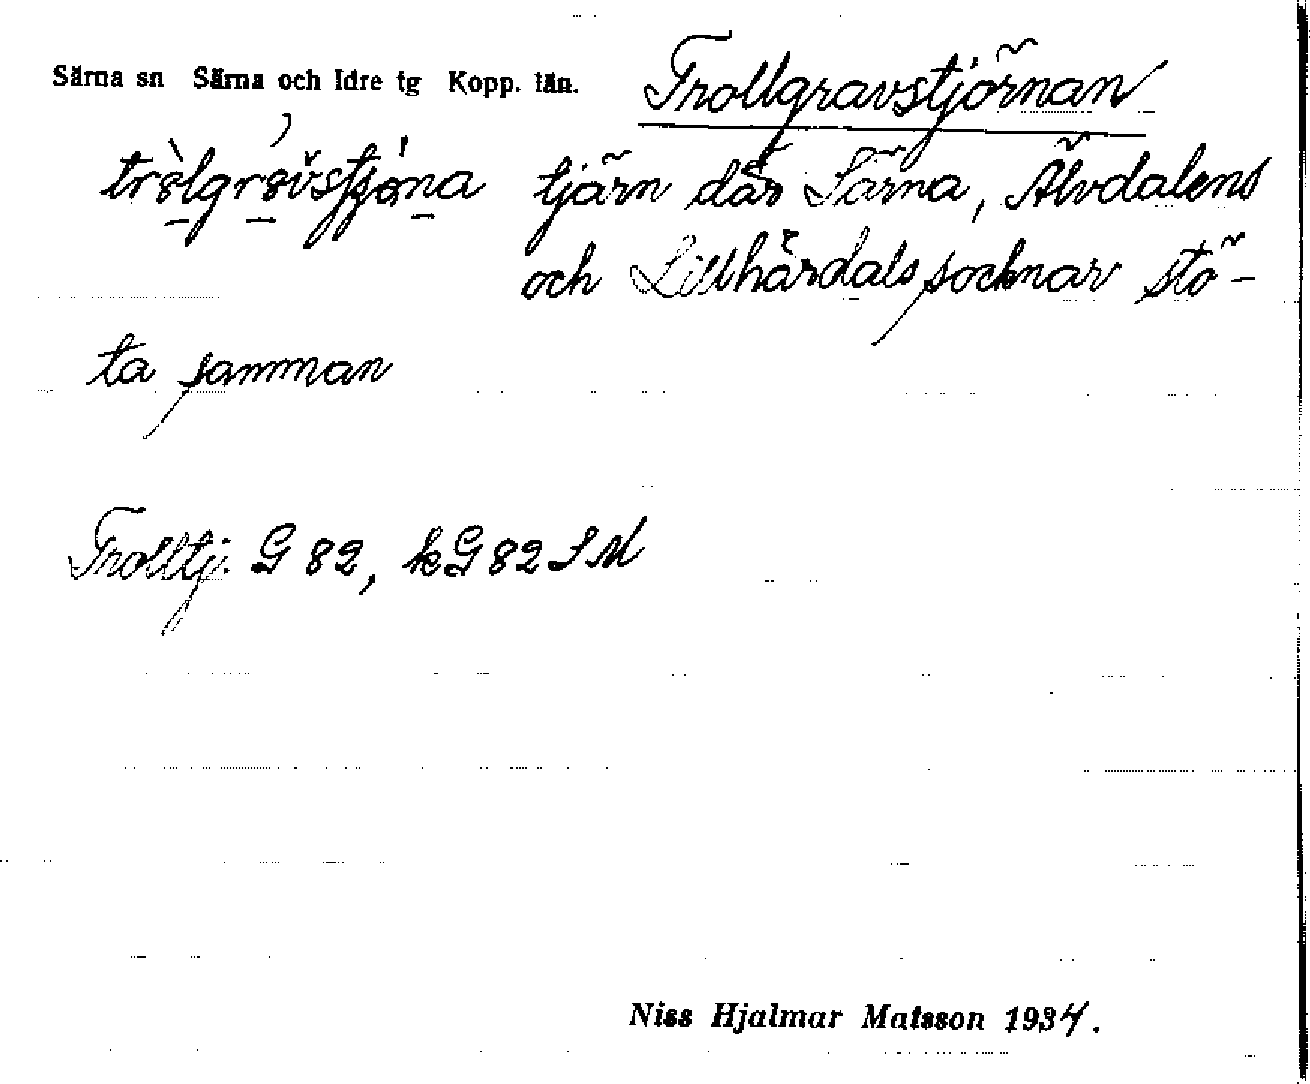 Särna sn Särna och Idre tg Kopp. län.
Trollgravstjörnan
tjärn där Särna, Älvdalens
och Lillhärdals socknar stö-
ta samman
Trolltj. G 82, kG 82 SM
Niss Hjalmar Matsson 1934.